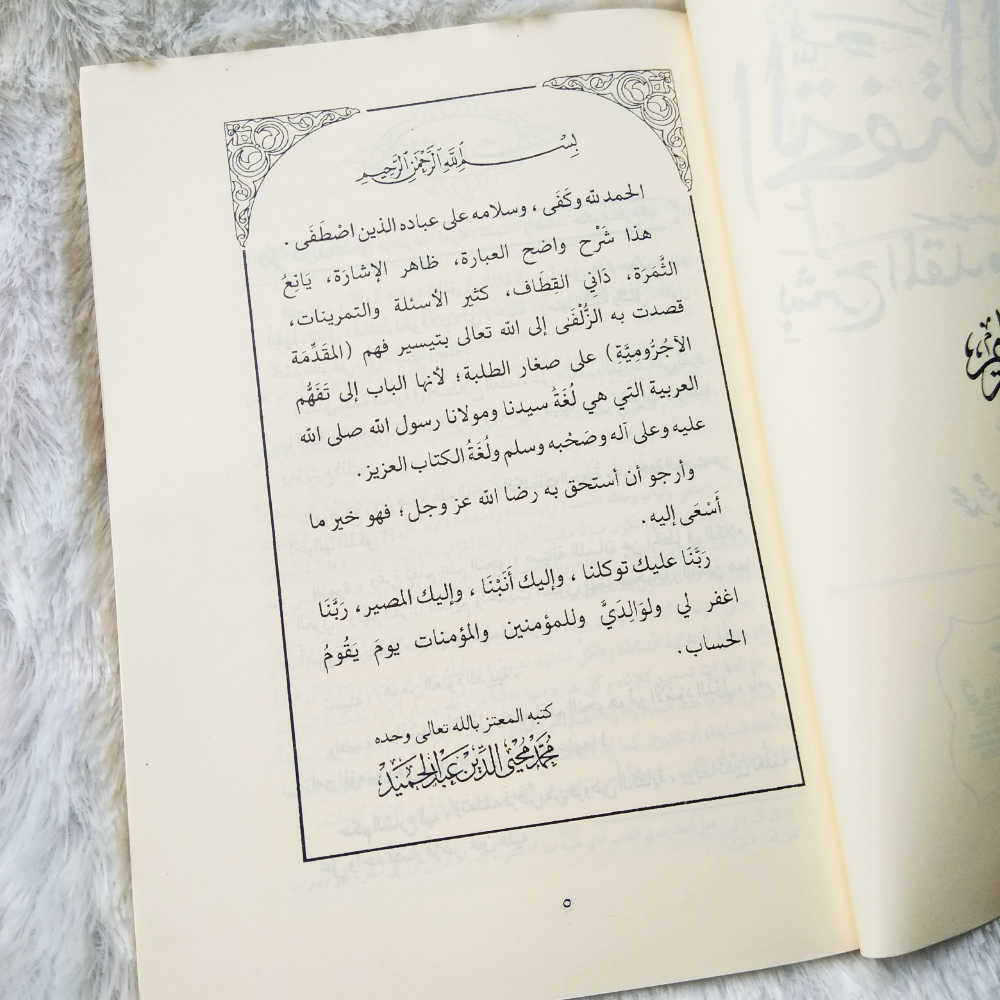 بِسْمِ اللَّهِ الرَّحْمَٰنِ الرَّحِيمِ
الحمد لله وكَفَى ، وسلامه على عباده الذين اصْطَفَى .
هذا شَرْح واضح العبارة، ظاهر الإشارَة، يَانِعُ
الثَّمَرَة، دَانِي القِطَاف، كثير الأسئلة والتمرينات،
قصدت به الزُّلْفَى إلى الله تعالى بتيسير فهم (المقَدِّمَة
الآجُرُّومِيَّةِ) على صغار الطلبة؛ لأنها الباب إلى تَفَهُّم
العربية التي هي لُغَةُ سيدنا ومولانا رسول الله صلى الله
عليه وعلى آله وصَحْبه وسلم ولُغَةُ الكتاب العزيز.
وأرجو أن أستحق به رضا الله عز وجل؛ فهو خير ما
أسْعَى إليه.
رَبَّنَا عليك توكلنا ، وإليك أنَبْنَا ، وإليك المصير، رَبَّنَا
اغفر لي ولوَالِدَيَّ وللمؤمنين والمؤمنات يومَ يَقُومُ
الحساب.
كتبه المعتز بالله تعالى وحده
مُحَمَّد مُحْيِي الدِّيْن عَبْد الحَمِيْد
٥